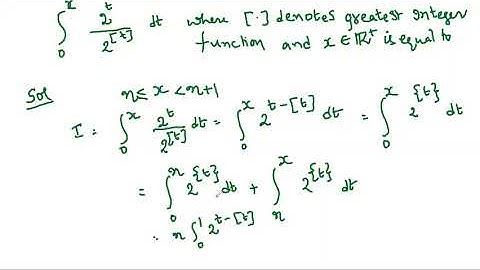 ∫₀ˣ 2^t / 2^[t] dt where [·] denotes greatest integer
function and x ∈ ℝ⁺ is equal to
Sol n ≤ x < n+1
I = ∫₀ˣ 2^t / 2^[t] dt = ∫₀ˣ 2^(t-[t]) dt = ∫₀ˣ 2^{t} dt
= ∫₀ⁿ 2^{t} dt + ∫ₙˣ 2^{t} dt
= n ∫₀¹ 2^(t-[t])